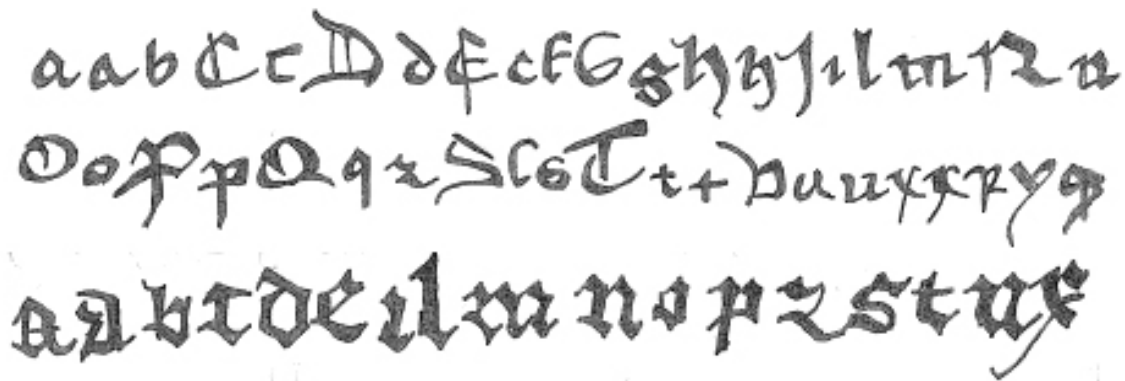 a a b C c D d E c F G s H h J i l m N u
O o P p Q q z S ſ s T t t V u u x x p y q
a a b c d e i l m n o p z s t u x